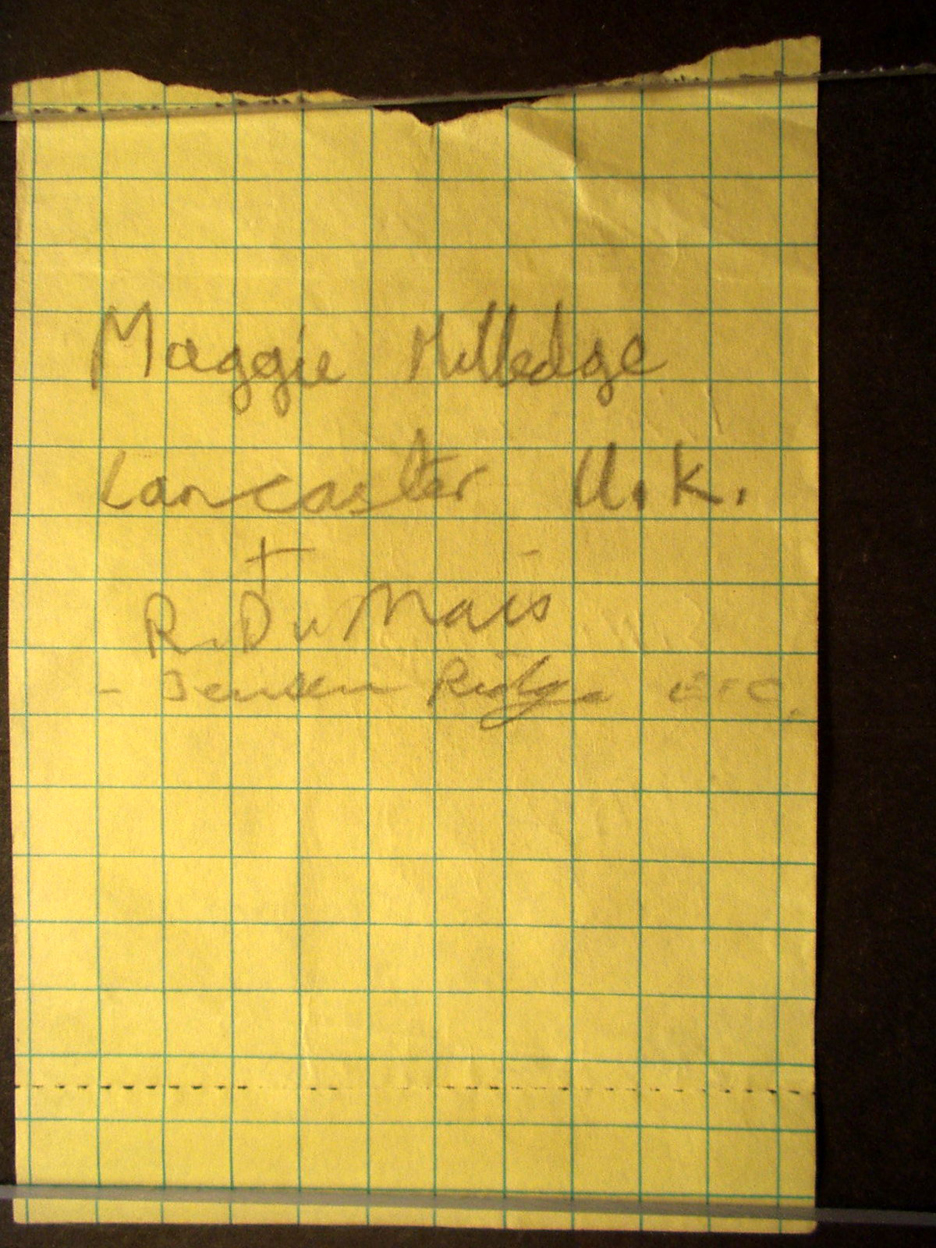 Maggie Milledge
Lancaster U.K.
+
R. DuMais
- Jensen Ridge ETC.